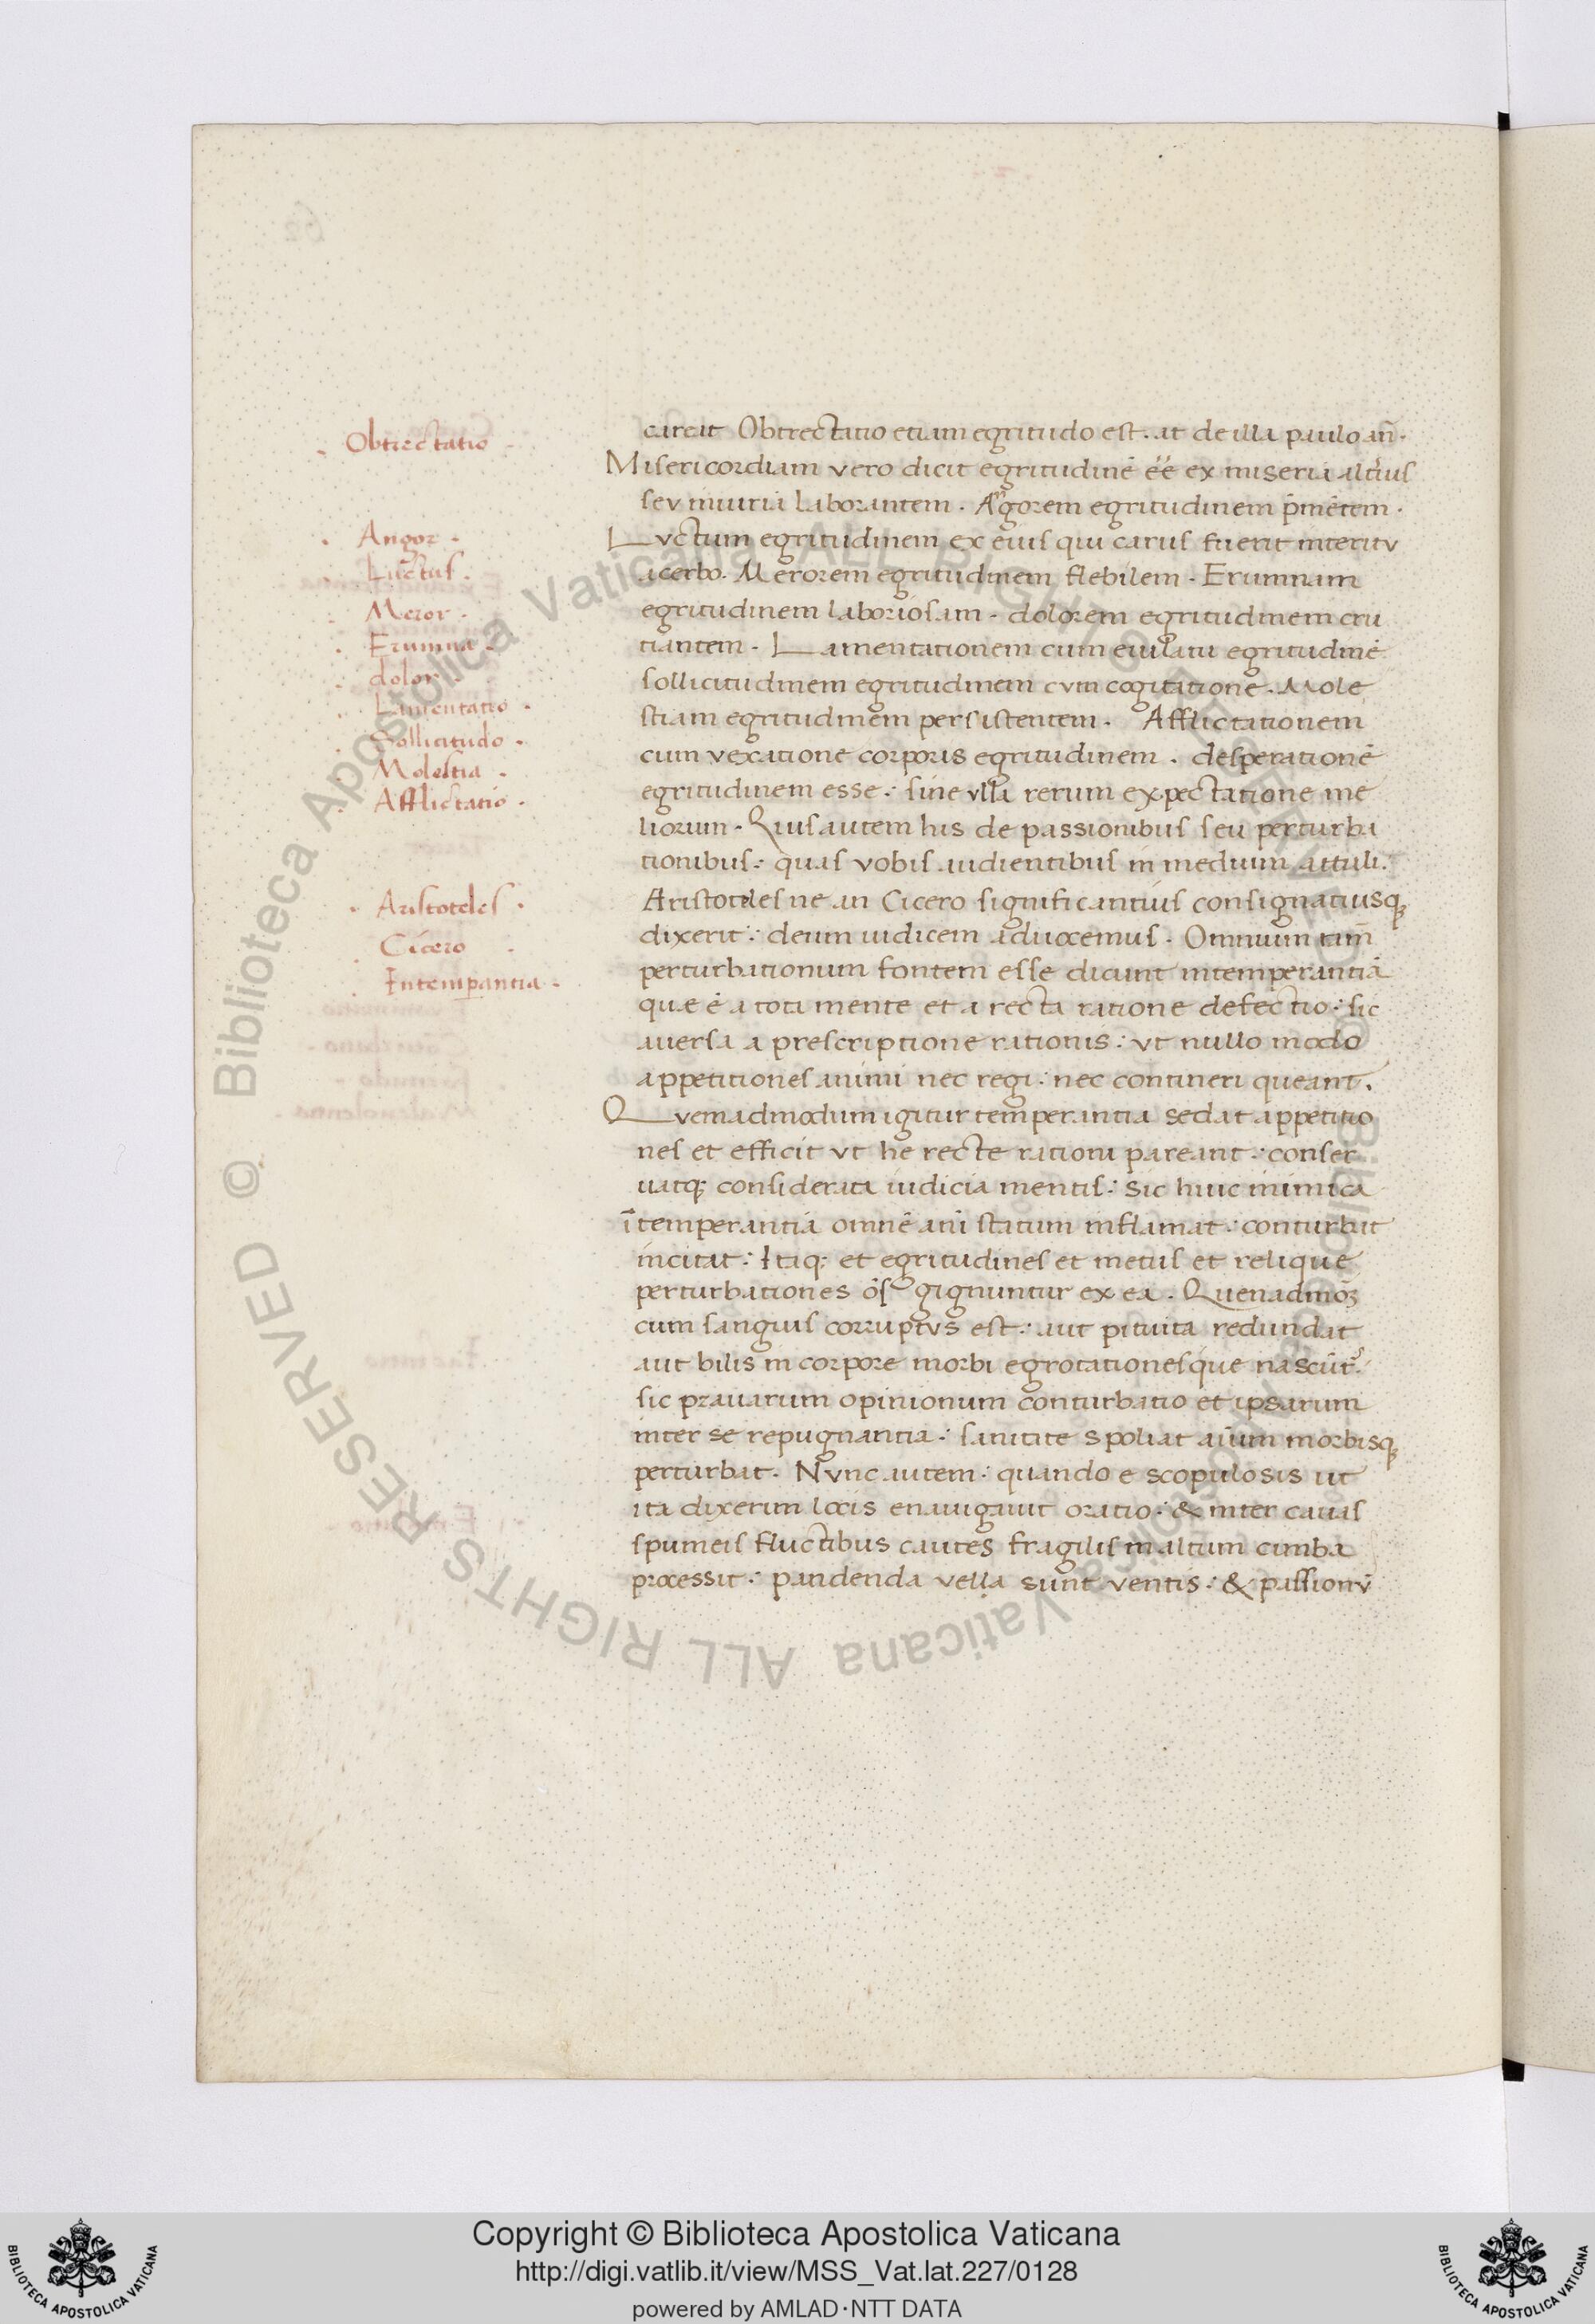 Obtrectatio
Angor
Luctus
Meror
Erumna
dolor
Lamentatio
Sollicitudo
Molestia
Afflictatio
Aristoteles
Cicero
Intemꝑantia
careat Obtrectatio etiam egritudo est. at de illa paulo añ.
Misericordiam vero dicit egritudinē eē ex miseria alteriuˢ
seu iniuria laborantem. Angorem egritudinem p̄mētem.
Luctum egritudinem ex eius qui carus fuerit interitu
acerbo. Merorem egritudinem flebilem. Erumnam
egritudinem laboriosam. dolorem egritudinem cru
tiantem. Lamentationem cum eiulatu egritudinē
sollicitudinem egritudinem cum cogitatione. Mole
stiam egritudinem persistentem. Afflictationem
cum vexatione corporis egritudinem. desperationē
egritudinem esse: sine ulla rerum expectatione me
liorum. Quis autem his de passionibus seu perturba
tionibus: quas vobis audientibus in medium attuli.
Aristoteles ne an Cicero significantius consignatiusq;
dixerit: deum iudicem aduocemus. Omnium tam̄
perturbationum fontem esse dicunt intemperantiā
quae ē a tota mente et a recta ratione defectio: sic
auersa a prescriptione rationis: ut nullo modo
appetitiones animi nec regi: nec contineri queant.
Quemadmodum igitur temperantia sedat appetitio
nes et efficit ut he recte rationi pareant: conser
uatq; considerata iudicia mentis: sic huic inimica
ītemperantia omnē aĩ statum inflamat: conturbat
incitat: Itaq; et egritudines et metus et relique
perturbationes ōs gignuntur ex ea. Quenadmoꝫ
cum sanguis corruptus est: aut pituita redundat
aut bilis in corpore morbi egrotationesque nascūt᷑:
sic prauarum opinionum conturbatio et ipsarum
inter se repugnantia: sanitate spoliat aĩum morbisq;
perturbat. Nunc autem: quando e scopulosis ut
ita dixerim locis enauigauit oratio: & inter cauas
spumeis fluctibus cautes fragilis in altum cimba
processit: pandenda vella sunt ventis: & passionū
Copyright © Biblioteca Apostolica Vaticana
http://digi.vatlib.it/view/MSS_Vat.lat.227/0128
powered by AMLAD·NTT DATA
© Biblioteca Apostolica Vaticana ALL RIGHTS RESERVED
BIBLIOTECA APOSTOLICA VATICANA
BIBLIOTECA APOSTOLICA VATICANA